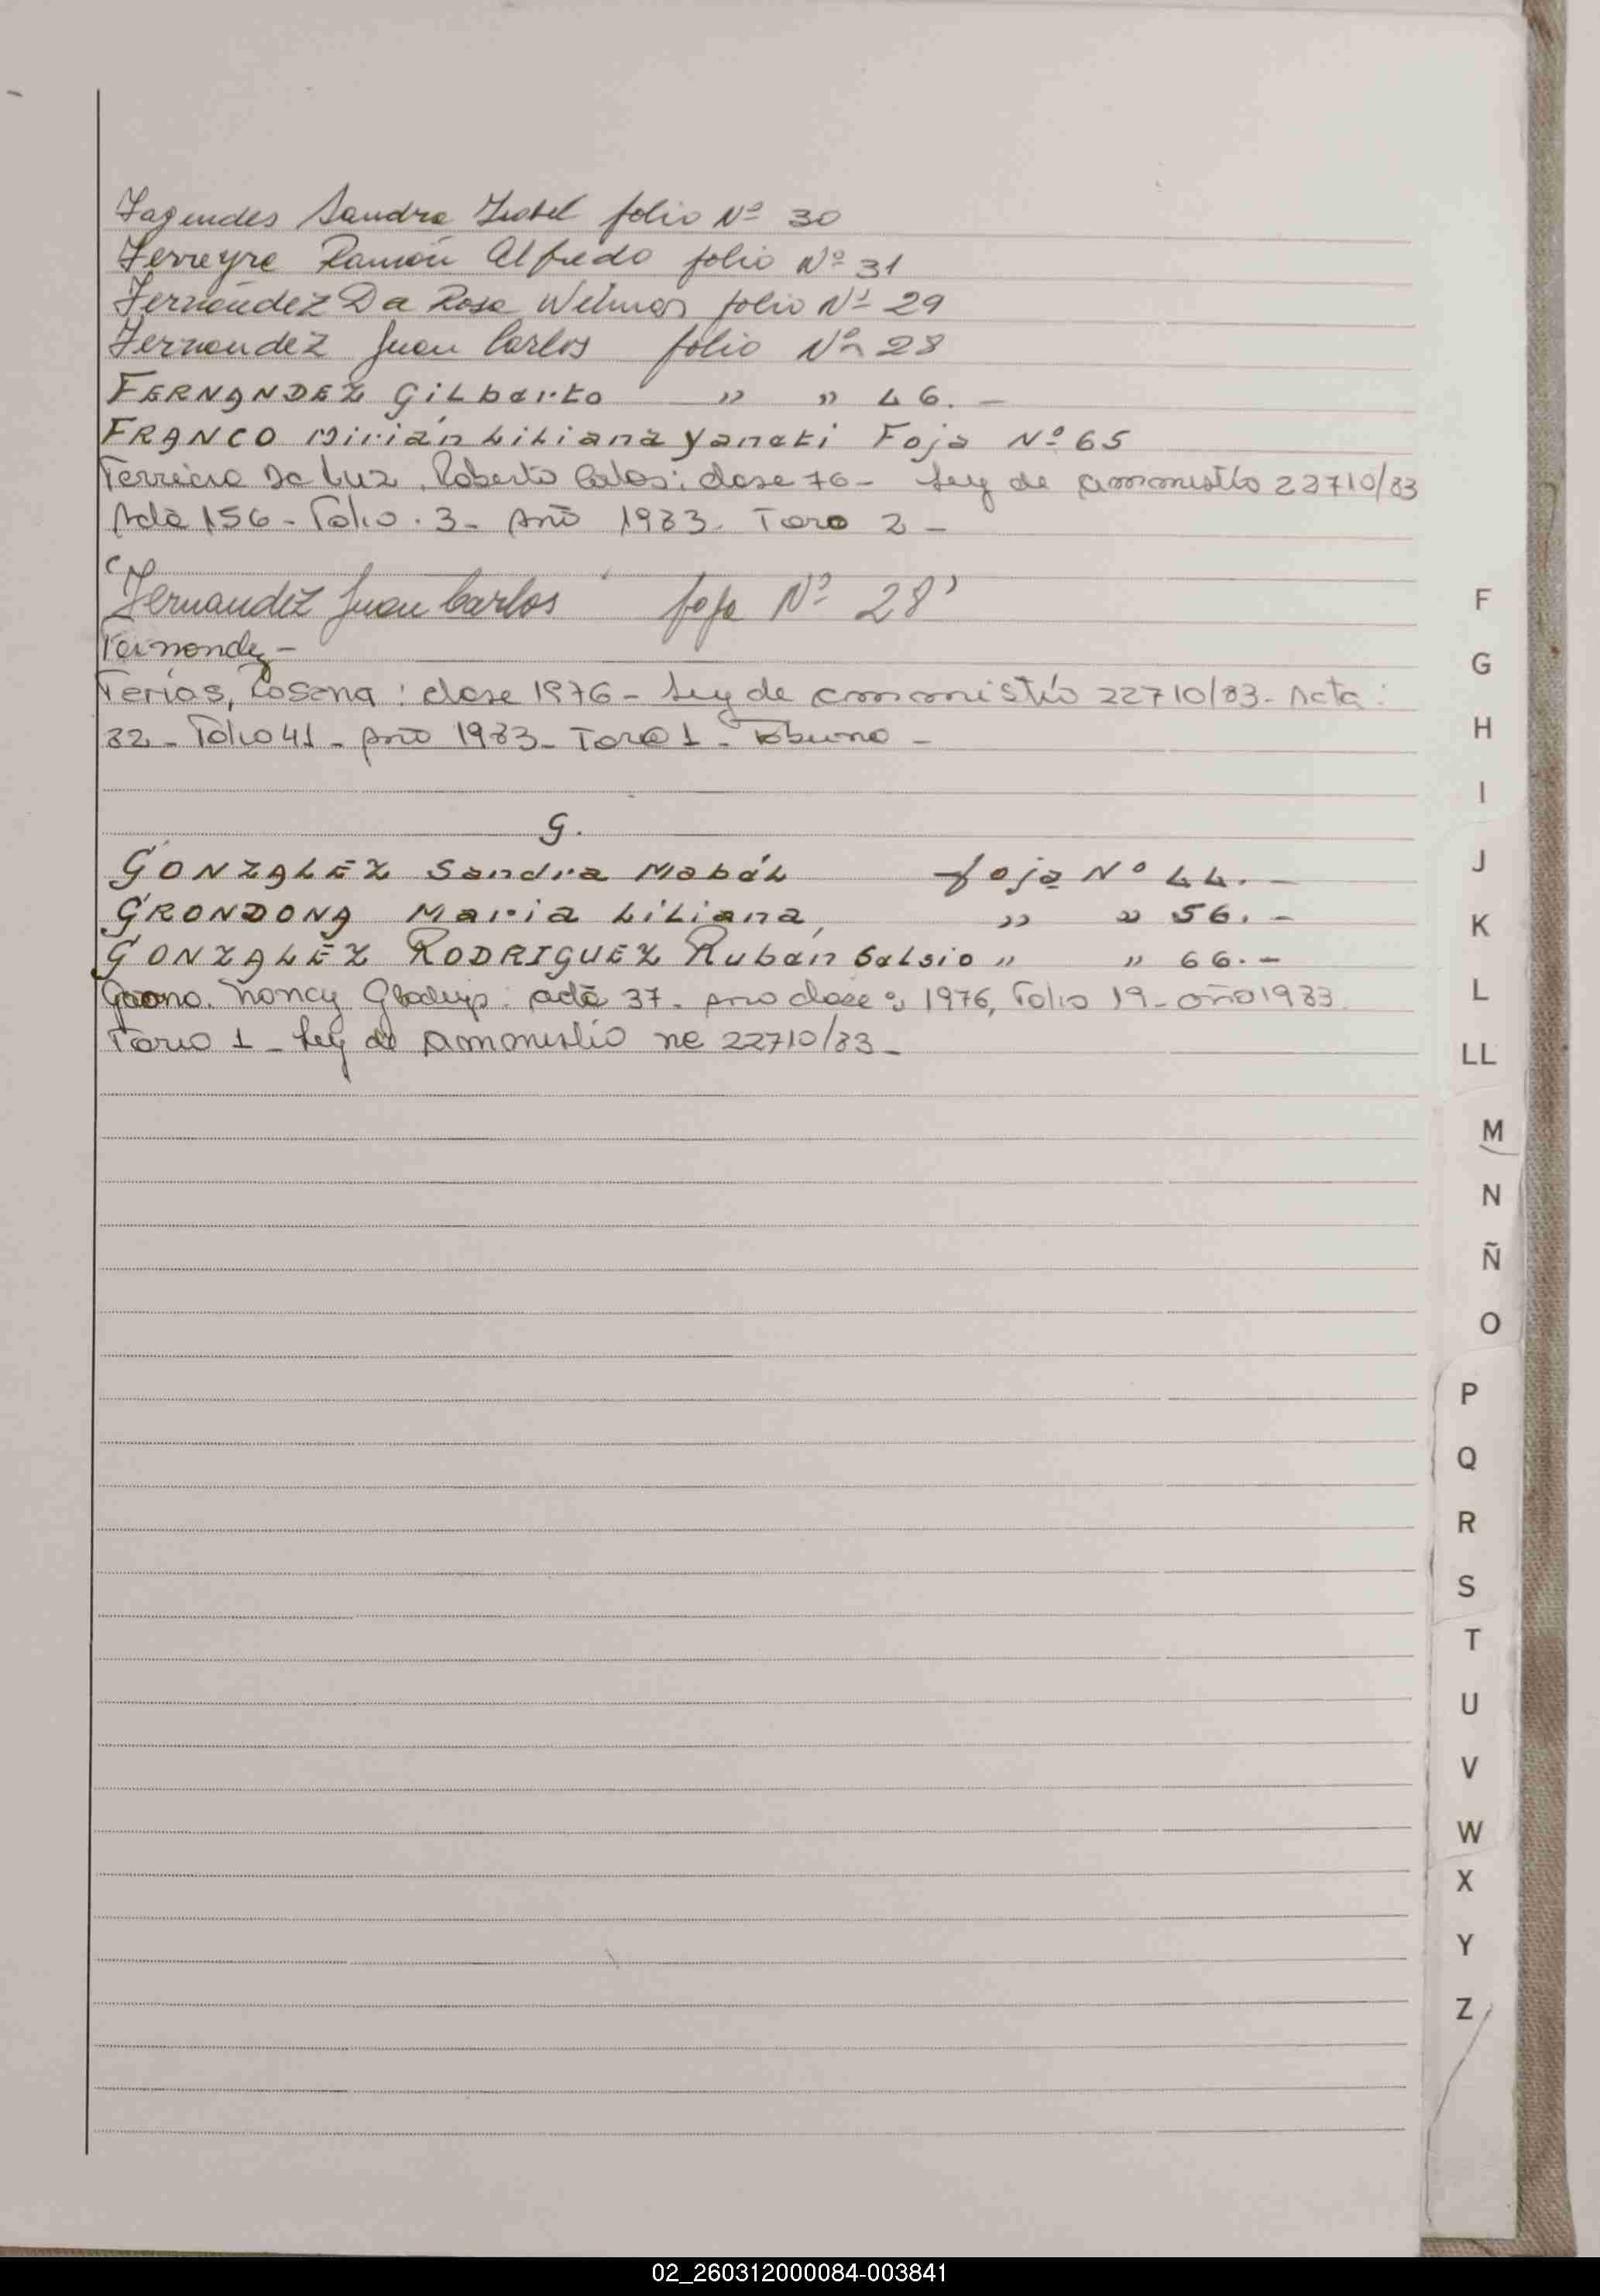 Fagundes Sandra Isabel folio Nº 30
Ferreyra Ramón Alfredo folio Nº 31
Fernández Da Rosa Wilmar folio Nº 29
Fernandez Juan Carlos folio Nº 28
FERNANDEZ Gilberto " " 46. -
FRANCO Mirian Liliana Yaneti Foja Nº 65
Ferreira Da Luz, Roberto Carlos: clase 76 - Ley de ammistia 22710/83
Acta 156 - Folio. 3 - Año 1983. Tomo 2 -
"Fernandez Juan Carlos foja Nº 28"
Fernandez -
Ferias, Rosana: clase 1976 - Ley de ammistia 22710/83 - Acta:
82 - Folio 41 - Año 1983 - Tomo 1 -
G.
GONZALEZ Sandra Mabel foja Nº 44. -
GRONDONA Maria Liliana, " " 56. -
GONZALEZ RODRIGUEZ Ruben " " 66. -
Gaona. Nancy Gladys: acta 37 - año clase: 1976, Folio 19 - año 1983.
Tomo 1 - Ley de ammistia 22710/83 -
F
G
H
I
J
K
L
LL
M
N
Ñ
O
P
Q
R
S
T
U
V
W
X
Y
Z
02_260312000084-003841